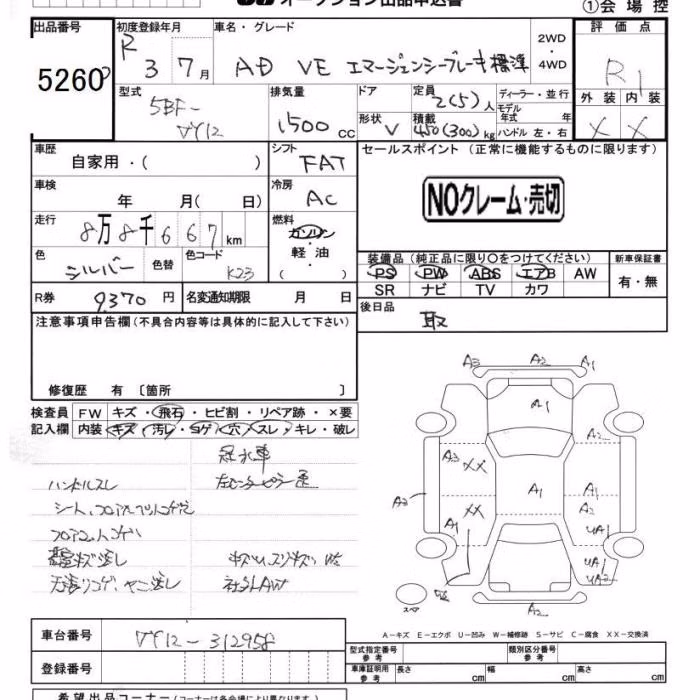 オークション出品申込書
①会場控
出品番号 初度登録年月 車名・グレード 評価点
R 3 7月 AD VE エマージェンシーブレーキ標準 2WD・4WD R1
5260
型式 排気量 ドア 定員 ディーラー・並行 外装 内装
5BF-VY12 1500cc 2(5)人 モデル年式 年 X X
形状 V 積載 450(300)kg ハンドル 左・右
車歴 シフト セールスポイント(正常に機能するものに限ります)
自家用・( ) FAT
車検 冷房 NOクレーム・売切
年 月( 日) AC
走行 燃料
8万8千667km ガソリン・軽油・( )
色 色替 色コード 装備品(純正品に限り○をつけてください) 新車保証書
シルバー K23 PS PW ABS エアB AW 有・無
SR ナビ TV カワ
R券 9,370円 名変通知期限 月 日
後日品
取
注意事項申告欄(不具合内容等は具体的に記入して下さい)
修復歴 有〔箇所 〕
検査員記入欄 FW キズ・飛石・ヒビ割・リペア跡・×要
内装 キズ・汚レ・コゲ・穴・スレ・キレ・破レ
冠水車
ハンドルスレ
社外AW
A3 A2 A1
A1
A2
A3 XX
A1 A1
A2
A1 XX UA1
UA1
UA2
A2
スペア
A-キズ E-エクボ U-凹み W-補修跡 S-サビ C-腐食 XX-交換済
車台番号 VY12-312958
型式指定番号 参考 類別区分番号 参考
登録番号 車庫証明用 参考 長さ cm 幅 cm 高さ cm
希望出品コーナー(コーナーは各会場により異なり